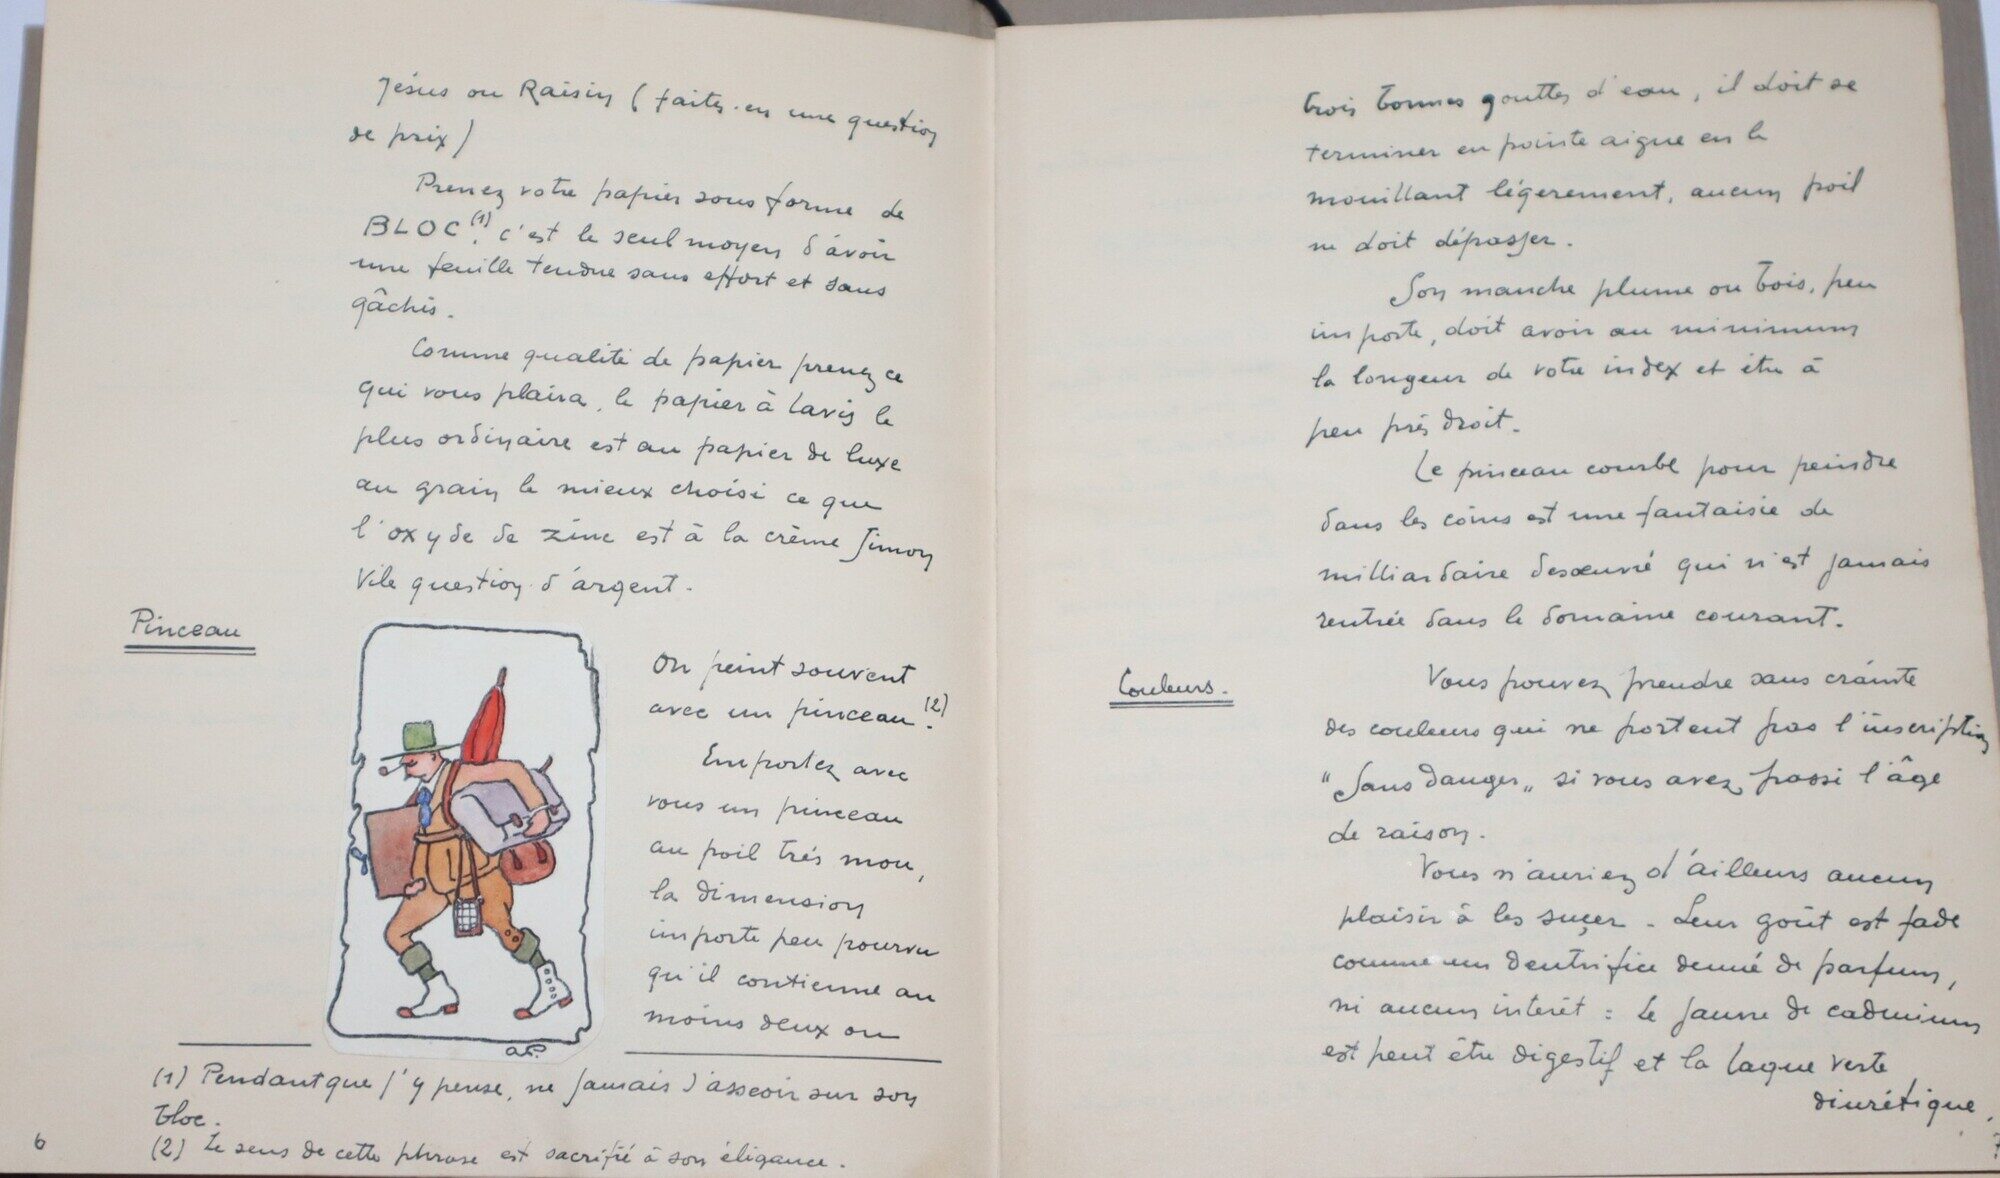 Jésus ou Raisin (faites-en une question
de prix)
Prenez votre papier sous forme de
BLOC(1), c'est le seul moyen d'avoir
une feuille tendue sans effort et sans
gâchis.
Comme qualité de papier prenez ce
qui vous plaira, le papier à lavis le
plus ordinaire est au papier de luxe
au grain le mieux choisi ce que
l'oxyde de zinc est à la crème Simon
Vile question d'argent.
Pinceau
On peint souvent
avec un pinceau(2).
Emportez avec
vous un pinceau
au poil très mou,
la dimension
importe peu pourvu
qu'il contienne au
moins deux ou
AP.
(1) Pendant que j'y pense, ne jamais s'asseoir sur son
bloc.
(2) Le sens de cette phrase est sacrifié à son élégance.
6
trois bonnes gouttes d'eau, il doit se
terminer en pointe aigue en le
mouillant légerement, aucun poil
ne doit dépasser.
Son manche plume ou bois, peu
importe, doit avoir au minimum
la longeur de votre index et être à
peu près droit.
Le pinceau courbe pour peindre
dans les coins est une fantaisie de
milliardaire desœuvré qui n'est jamais
rentrée dans le domaine courant.
Couleurs.
Vous pouvez prendre sans crainte
des couleurs qui ne portent pas l'inscription
"Sans danger" si vous avez passé l'âge
de raison.
Vous n'auriez d'ailleurs aucun
plaisir à les suçer - Leur goût est fade
comme un dentrifice denué de parfum,
ni aucun intérêt : Le jaune de cadmium
est peut être digestif et la laque verte
diurétique.
7